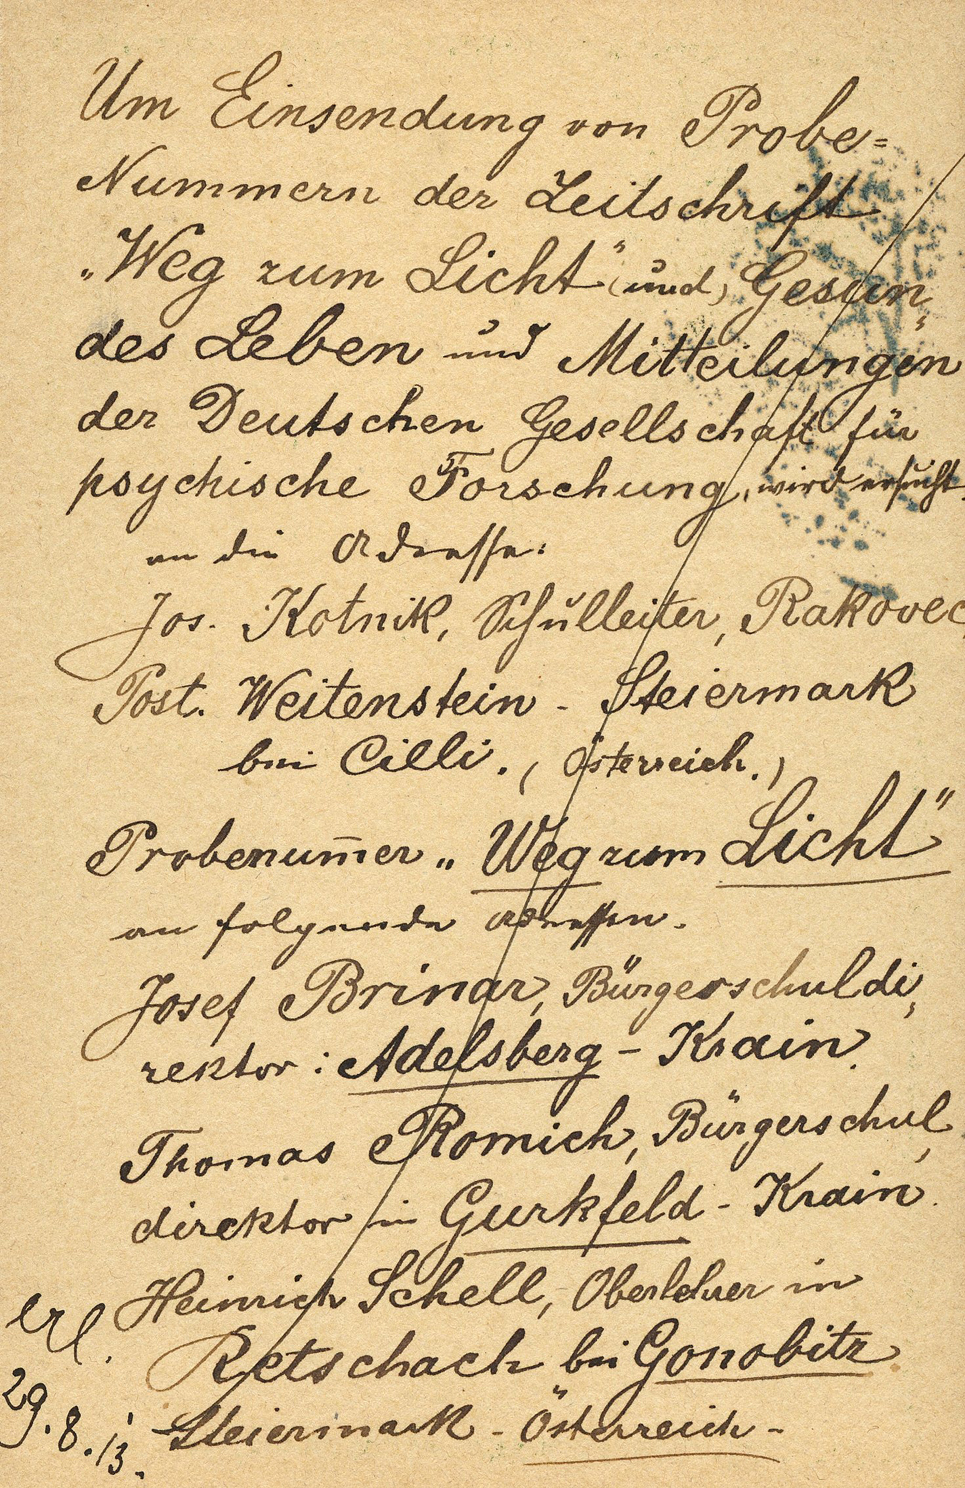 Um Einsendung von Probe=
Nummern der Zeitschrift
„Weg zum Licht" (und) Gesun„
des Leben und Mitteilungen
der Deutschen Gesellschaft für
psychische Forschung, wird ersucht
an die Adresse:
Jos. Kotnik, Schulleiter, Rakovec
Post. Weitenstein - Steiermark
bei Cilli. (Österreich.)
Probenum̅er „Weg zum Licht"
an folgende Adressen.
Josef Brinar, Bürgerschuldi„
rektor: Adelsberg - Krain.
Thomas Romich, Bürgerschul„
direktor in Gurkfeld - Krain.
Heinrich Schell, Oberlehrer in
Retschach bei Gonobitz
Steiermark - Österreich -
erl.
29.8.13.